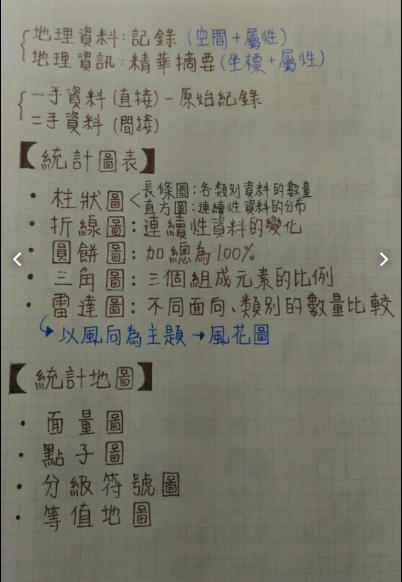 地理資料:記錄(空間+屬性)
地理資訊:精華摘要(坐標+屬性)
一手資料(直接)-原始紀錄
二手資料(間接)
【統計圖表】
•柱狀圖<長條圖:各類別資料的數量
直方圖:連續性資料的分布
•折線圖:連續性資料的變化
•圓餅圖:加總為100%
•三角圖:三個組成元素的比例
•雷達圖:不同面向、類別的數量比較
↳以風向為主題→風花圖
【統計地圖】
•面量圖
•點子圖
•分級符號圖
•等值地圖